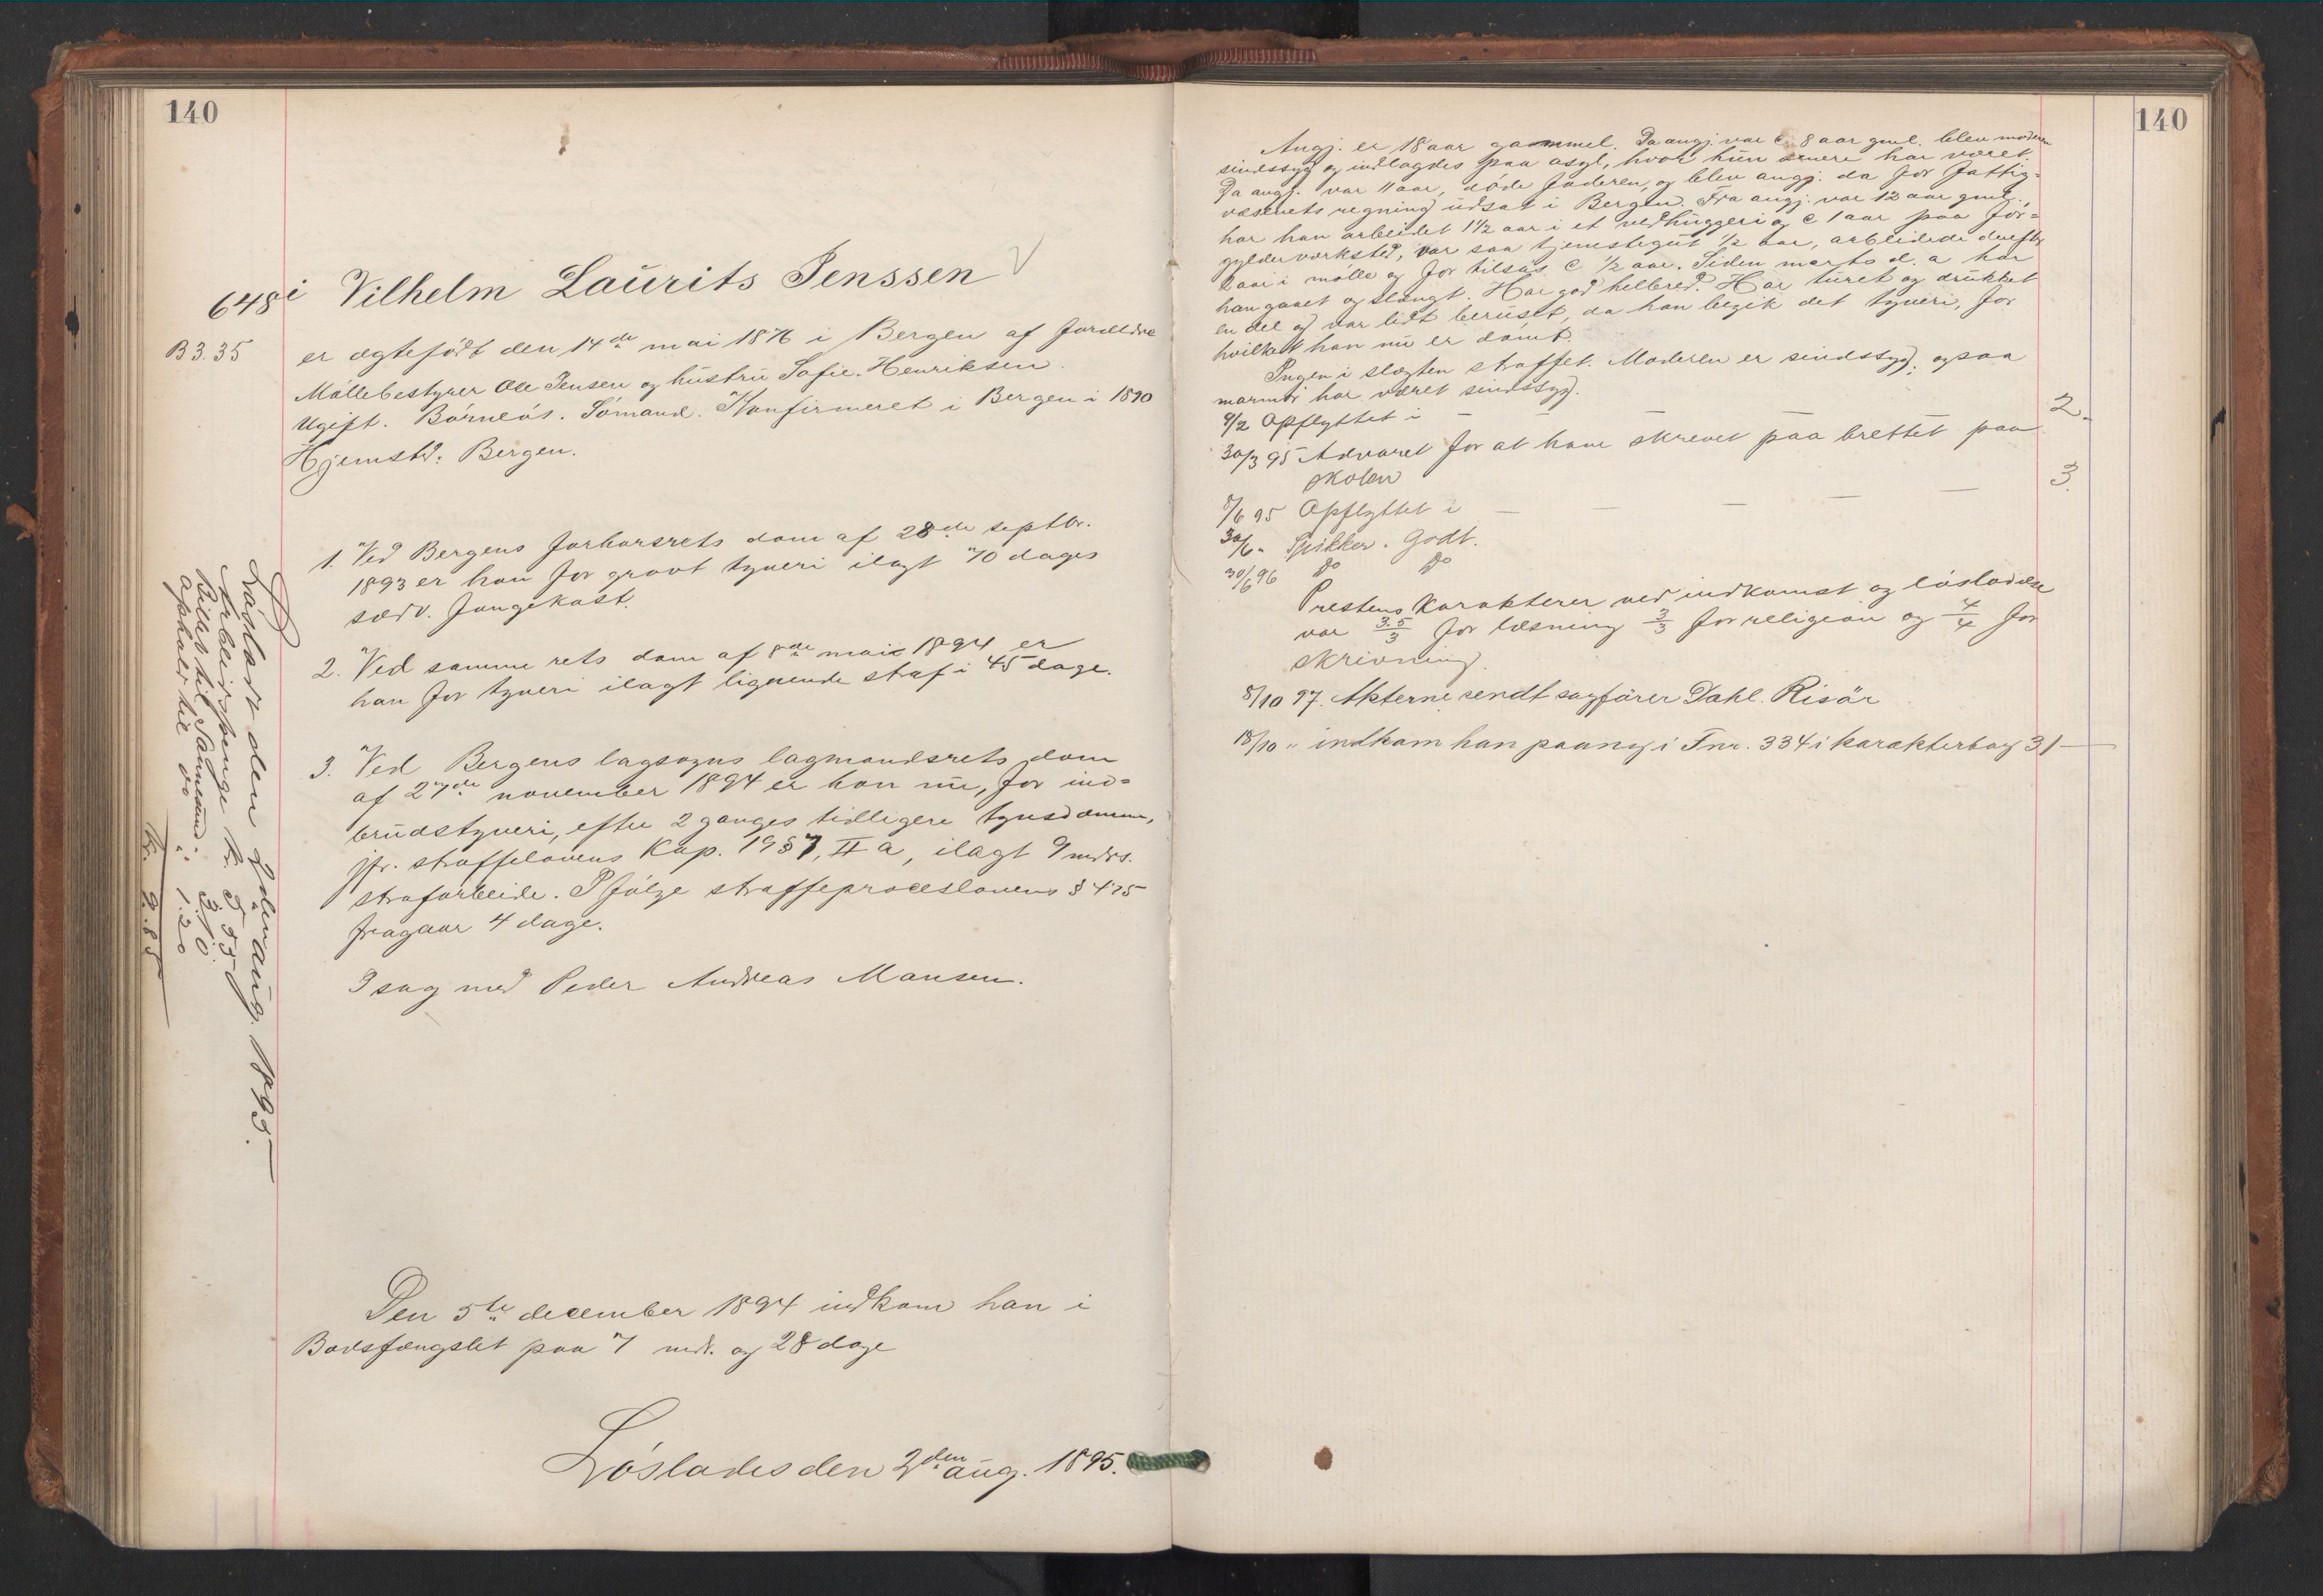 140
648 i Vilhelm Laurits Jenssen
B 3.35
er ægtefödt den 14de mai 1876 i Bergen af forældre
Möllebestyrer Ole Jensen og hustru Sofie Henriksen.
Ugift. Börnelös. Sömand. Konfirmeret i Bergen i 1890
Hjemstd: Bergen.
1. Ved Bergens forhørsrets dom af 28de septbr.
1893 er han for grovt tyveri ilagt 70 dages
sædv. fangekost.
2. Ved samme rets dom af 8de mai 1894 er
han for tyveri ilagt lignende straf i 45 dage.
3. Ved Bergens lagsogns lagmandsrets dom
af 27de november 1894 er han nu, for ind=
brudstyveri, efter 2 ganges tidligere tyvsdömme,
jfr. straffelovens Kap. 19 § 7, II a, ilagt 9 mdrs.
strafarbeide. I fölge straffeproceslovens § 475
fragaar 4 dage.
I sag med Peder Andreas Mansen.
Den 5te december 1894 indkom han i
Bodsfængslet paa 7 mdr. og 28 dage
Löslades den 2den aug. 1895.
Lösladt den 2den aug. 1895.
Arbeidspenge kr. 5.55
Billet til Sannesund " 3.10
Ophold til do " 1.20
Kr. 9.85
140
Angj. er 18 aar gammel. Da angj. var c. 8 aar gml. blev moderen
sindssyg og indlagdes paa asyl, hvor hun senere har været.
Da angj. var 11 aar, döde faderen, og blev angj. da for fattig=
væsenets regning udsat i Bergen. Fra angj. var 12 aar gml.,
har han arbeidet 1 1/2 aar i et vedhuggeri og c 1 aar paa for=
gylderværksted, var saa tjenestegut 1/2 aar, arbeidede derefter
aar i mölle og for tilsås c 1/2 aar. Siden marts d. a har
han gaaet og slængt. Har god helbred. Har turet og drukket
en del og var lidt beruset, da han begik det tyveri, for
hvilket han nu er dömt.
Ingen i slægten straffet. Moderen er sindssyg; ogsaa
mormor har været sindssyg.
9/2 Opflyttet i — — — — — 2.
30/3 95 Advaret for at have skrevet paa brettet paa
skolen
8/6 95 Opflyttet i — — — — — 3.
30/6 " Spikker. Godt.
30/6 96 do do
Prestens karakterer ved indkomst og lösladelse
var 3.5/3 for læsning 3/3 for religion og 4/4 for
skrivning.
8/10 97. Akterne sendt sagförer Dahl. Risör
18/10 " indkom han paany i Fnr. 334 i karakterbog 31 —